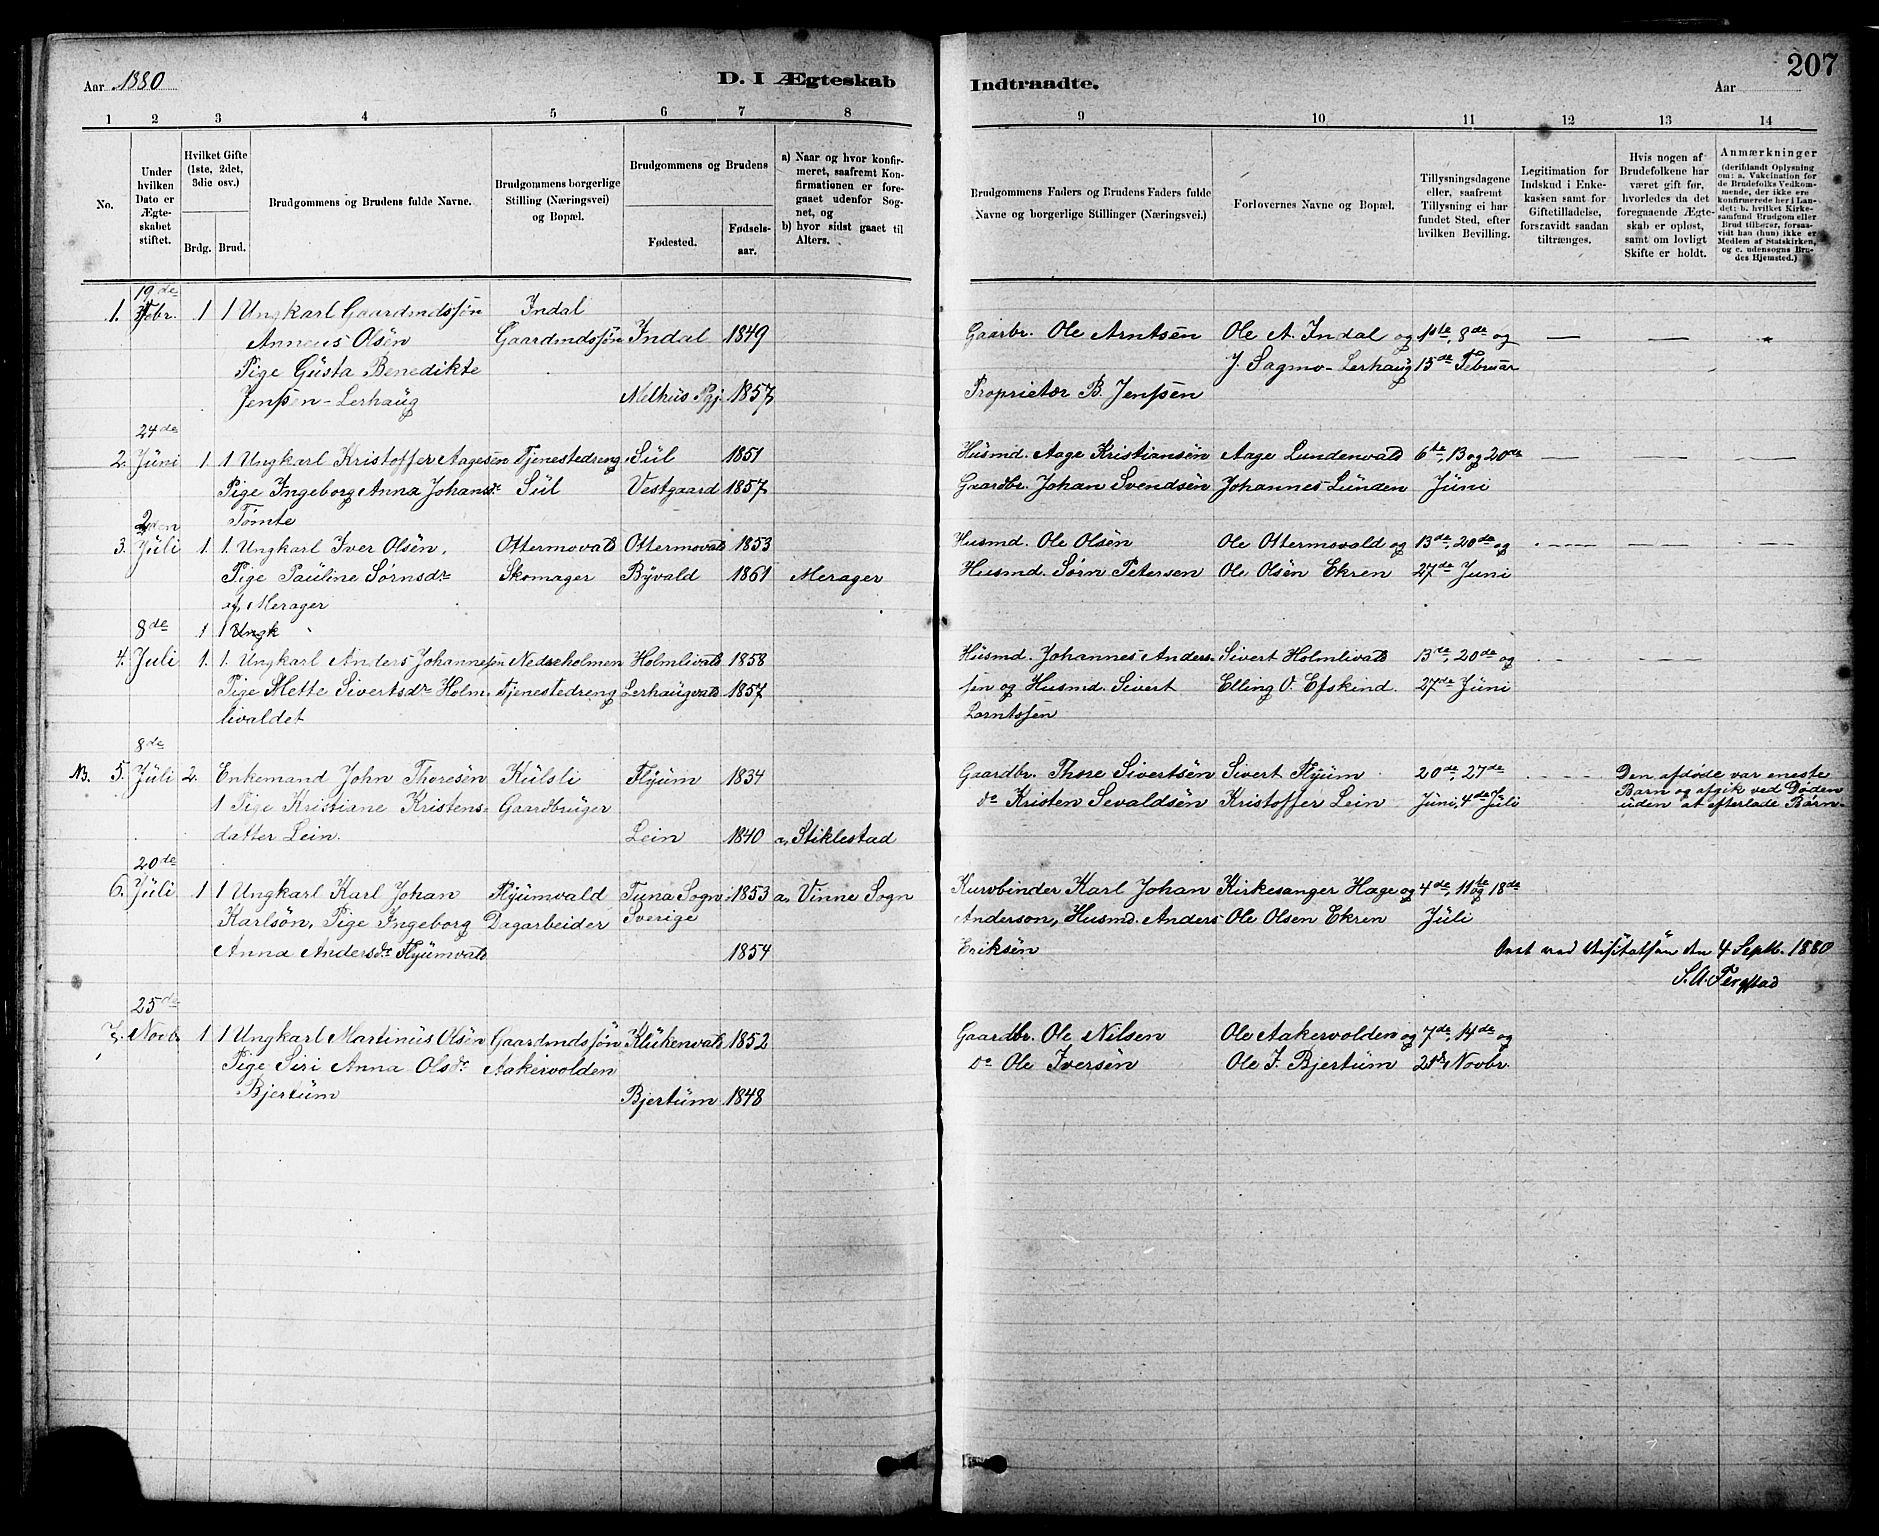 Aar 1880
D. I Ægteskab
1 2 3 4 5 6 7 8
No.
Under hvilken Dato er Ægteskabet stiftet.
Hvilket Gifte (1ste, 2det, 3die osv.)
Brdg. Brud.
Brudgommens og Brudens fulde Navne.
Brudgommens borgerlige Stilling (Næringsvei) og Bopæl.
Brudgommens og Brudens
Fødested.
Fødselsaar.
a) Naar og hvor konfirmeret, saafremt Konfirmationen er foregaaet udenfor Sognet, og
b) hvor sidst gaaet til Alters.
19de
1. Febr. 1 1 Ungkarl Gaardmdssøn Indal
Anneus Olsen Gaardmdssøn Indal 1849
Pige Gusta Benedikte
Jenssen-Lerhaug Melhus Pgj. 1857
24de
2. Juni 1 1 Ungkarl Kristoffer Aagesen Tjenestedreng Sül 1851
Pige Ingeborg Anna Johansdr Sül Vestgaard 1857
Tømte
2den
3. Juli 1. 1. Ungkarl Iver Olsen, Ottermovald Ottermovald 1853
Pige Pauline Sørnsdr Skomager Byvald 1861 Merager
af Merager
8de 1 1 Ungk
4. Juli 1. 1. Ungkarl Anders Johannessen Nedreholmen Holmlivald 1858
Pige Mette Sivertsdr Holm- Tjenestedreng Lerhaugvald 1857
livaldet
8de
NB. 5. Juli 2. Enkemand John Thoresen Kulsli Flyum 1834
1 Pige Kristiane Kristens- Gaardbruger
datter Lein. Lein 1840 a, Stiklestad
20de
6. Juli 1 1 Ungkarl Karl Johan Flyumvald Tuna Sogn 1853 a, Vinne Sogn
Karlsøn, Pige Ingeborg Dagarbeider Sverige
Anna Andersdr Flyumvald 1854
25de
7. Novbr 1 1 Ungkarl Martinus Olsen Gaardmdssøn Klukenvald 1852
Pige Siri Anna Olsdr Aakervolden
Bjertum Bjertum 1848
207
Indtraadte.
Aar
9 10 11 12 13 14
Brudgommens Faders og Brudens Faders fulde Navne og borgerlige Stillinger (Næringsvei.)
Forlovernes Navne og Bopæl.
Tillysningsdagene eller, saafremt Tillysning ei har fundet Sted, efter hvilken Bevilling.
Legitimation for Indskud i Enkekassen samt for Giftetilladelse, forsaavidt saadan tiltrænges.
Hvis nogen af Brudefolkene har været gift før, hvorledes da det foregaaende Ægteskab er opløst, samt om lovligt Skifte er holdt.
Anmærkninger (deriblandt Oplysning om: a. Vakcination for de Brudefolks Vedkommende, der ikke ere konfirmerede her i Landet; b. hvilket Kirkesamfund Brudgom eller Brud tilhører, forsaavidt han (hun) ikke er Medlem af Statskirken, og c. udensogns Brudes Hjemsted.)
Gaarbr. Ole Arntsen Ole A. Indal og 1ste, 8de og — — —
J. Sagmo-Lerhaug 15de Februar
Proprietær B. Jenssen
Husmd. Aage Kristiansen Aage Lundenvald 6te, 13 og 20de — — —
Gaardbr. Johan Svendsen Johannes Lunden Juni
Husmd. Ole Olsen Ole Ottermovald og 13de, 20de og
Husmd. Sørn Petersen Ole Olsen Ekren 27de Juni
Husmd. Johannes Anders- Sivert Holmlivald 13de, 20de og
sen og Husmd. Sivert Elling O. Efskind. 27de Juni
Larntssen
Gaardbr. Thore Sivertsen Sivert Flyum 20de, 27de Den afdøde var eneste
Barn og afgik ved Døden
do Kristen Sevaldsen Kristoffer Lein Juni, 4de Juli uden at efterlade Børn.
Kurvbinder Karl Johan Kirkesanger Hage og 4de, 11te og 18de
Anderson, Husmd. Anders Ole Olsen Ekren Juli
Eriksen
ved Visitatsen den 4 Septb. 1880
Gaardbr. Ole Nilsen Ole Aakervolden og 7de, 14de og
do Ole Iversen Ole J. Bjertum 21de Novbr.